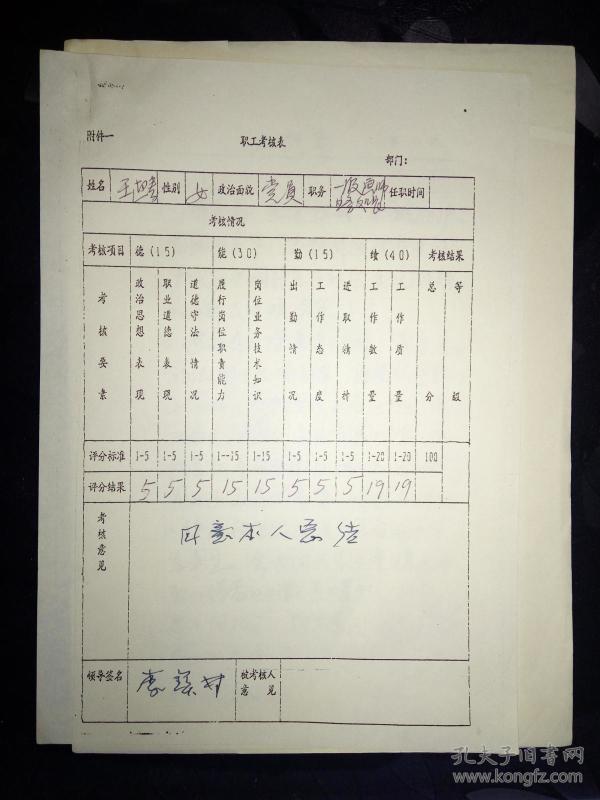 附件一
职工考核表
部门：
姓名 性别 女 政治面貌 党员 职务 任职时间
考核情况
考核项目 德(15) 能(30) 勤(15) 绩(40) 考核结果
考核要素 政治思想表现 职业道德表现 道德守法情况 履行岗位职责能力 岗位业务技术知识 出勤情况 工作态度 进取精神 工作数量 工作质量 总分 等级
评分标准 1-5 1-5 1-5 1--15 1-15 1-5 1-5 1-5 1-20 1-20 100
评分结果 5 5 5 15 15 5 5 5 19 19
考核意见 同意本人总结
领导签名 被考核人意见
孔夫子旧书网
www.kongfz.com